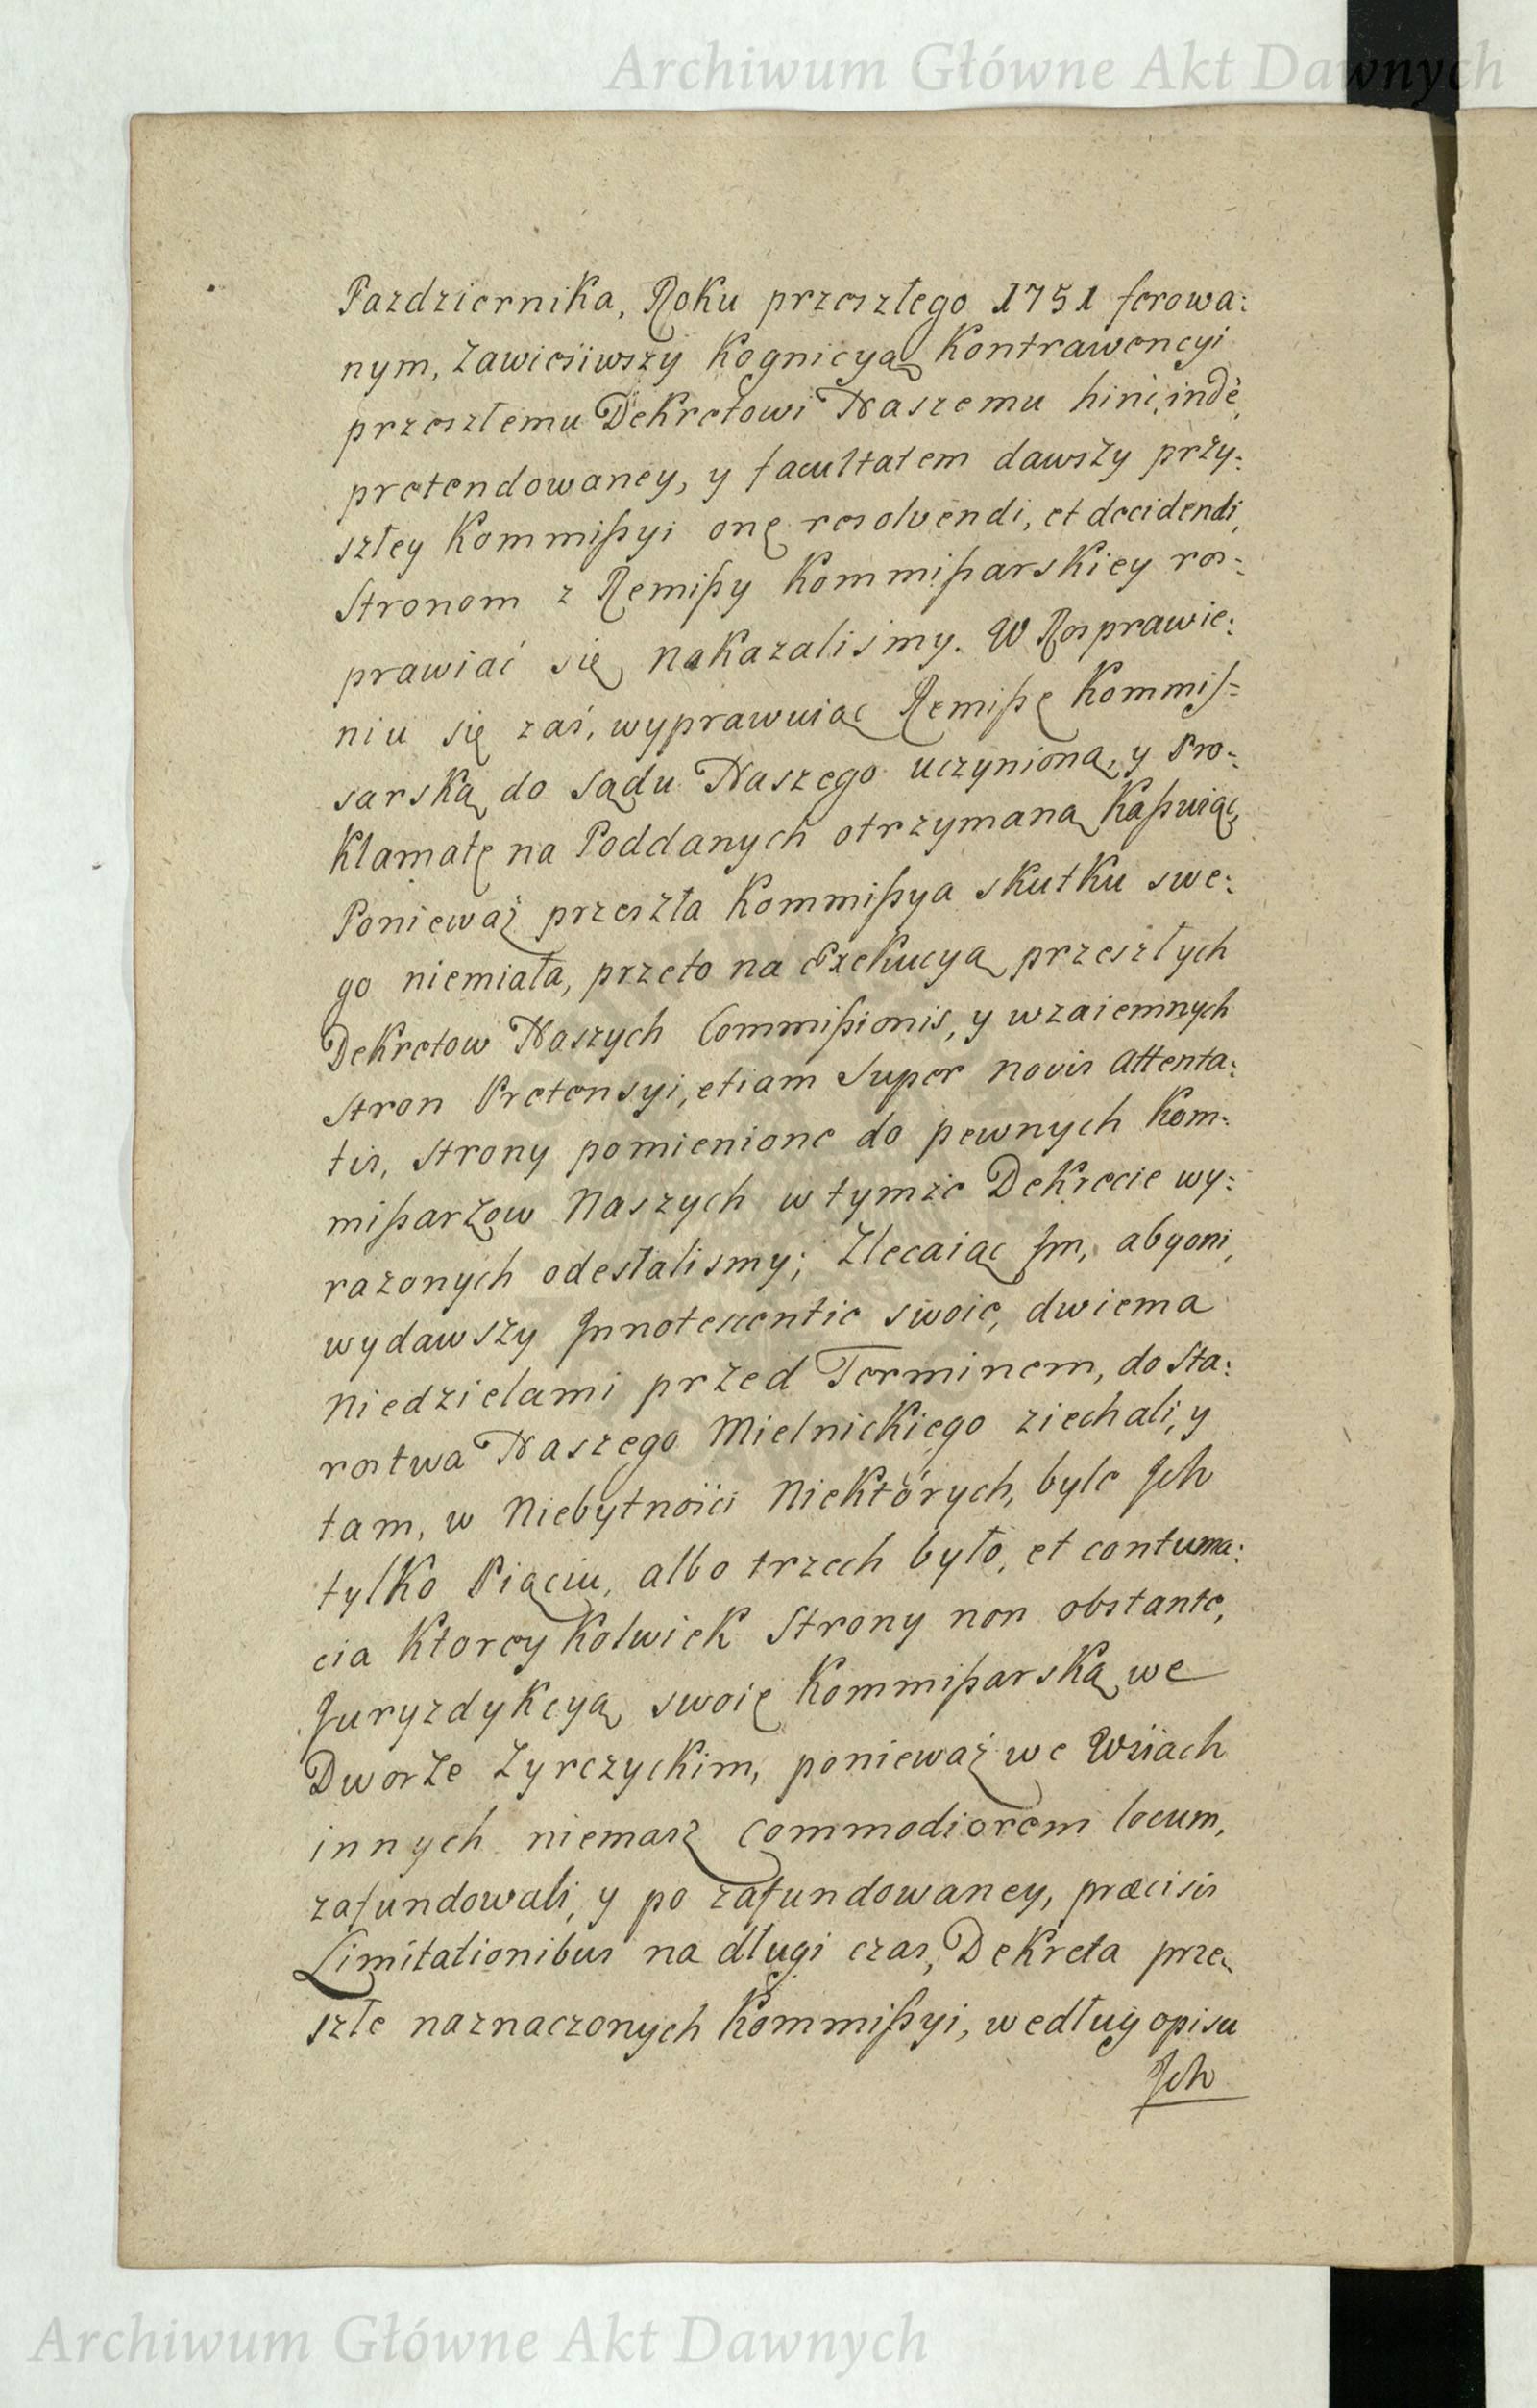 Archiwum Główne Akt Dawnych
Pazdziernika, Roku przeszłego 1751 ferowa:
nym, Zawiesiwszy Kognicyą Kontrawencyi
przeszłemu Dekretowi Naszemu hinc, indè,
pretendowaney, y facultatem dawszy przy:
szłey Kommißyi onę resolvendi, et decidendi,
Stronom z Remißy Kommißarskiey ros:
prawiać się nakazaliśmy. W Rosprawie:
niu się zaś, wyprawuiąc Remißę Kommis=
sarską do Sądu Naszego uczynioną, y Pro:
Klamatę na Poddanych otrzymaną Kaßuiąc,
Ponieważ przeszła Kommißya skutku swe:
go niemiała, przeto na Exekucyą przeszłych
Dekretow Naszych Commißionis, y wzaiemnych
Stron Pretensyi, etiam Super novis Attenta:
tis, Strony pomienione do pewnych Kom:
mißarzow Naszych w tymże Dekrecie wy:
razonych odesłalismy; Zlecaiąc Jm, aby oni,
wydawszy Jnnotescentie swoie, dwiema
Niedzielami przed Terminem, do Sta:
rostwa Naszego Mielnickiego ziechali, y
tam, w Niebytnośći Niektórych, byle Jch
tylko Piąciu, albo trzech było, et contuma:
cia Ktorey Kolwiek Strony non obstante,
Juryzdykcyą swoię Kommißarską we
Dworze Zyrczyckim, ponieważ we Wśiach
innych niemasz commodiorem locum,
zafundowali, y po zafundowaney, præcisis
Limitationibus na długi czas, Dekreta prze:
szłe naznaczonych Kommißyi, według opisu
Jch
Archiwum Główne Akt Dawnych